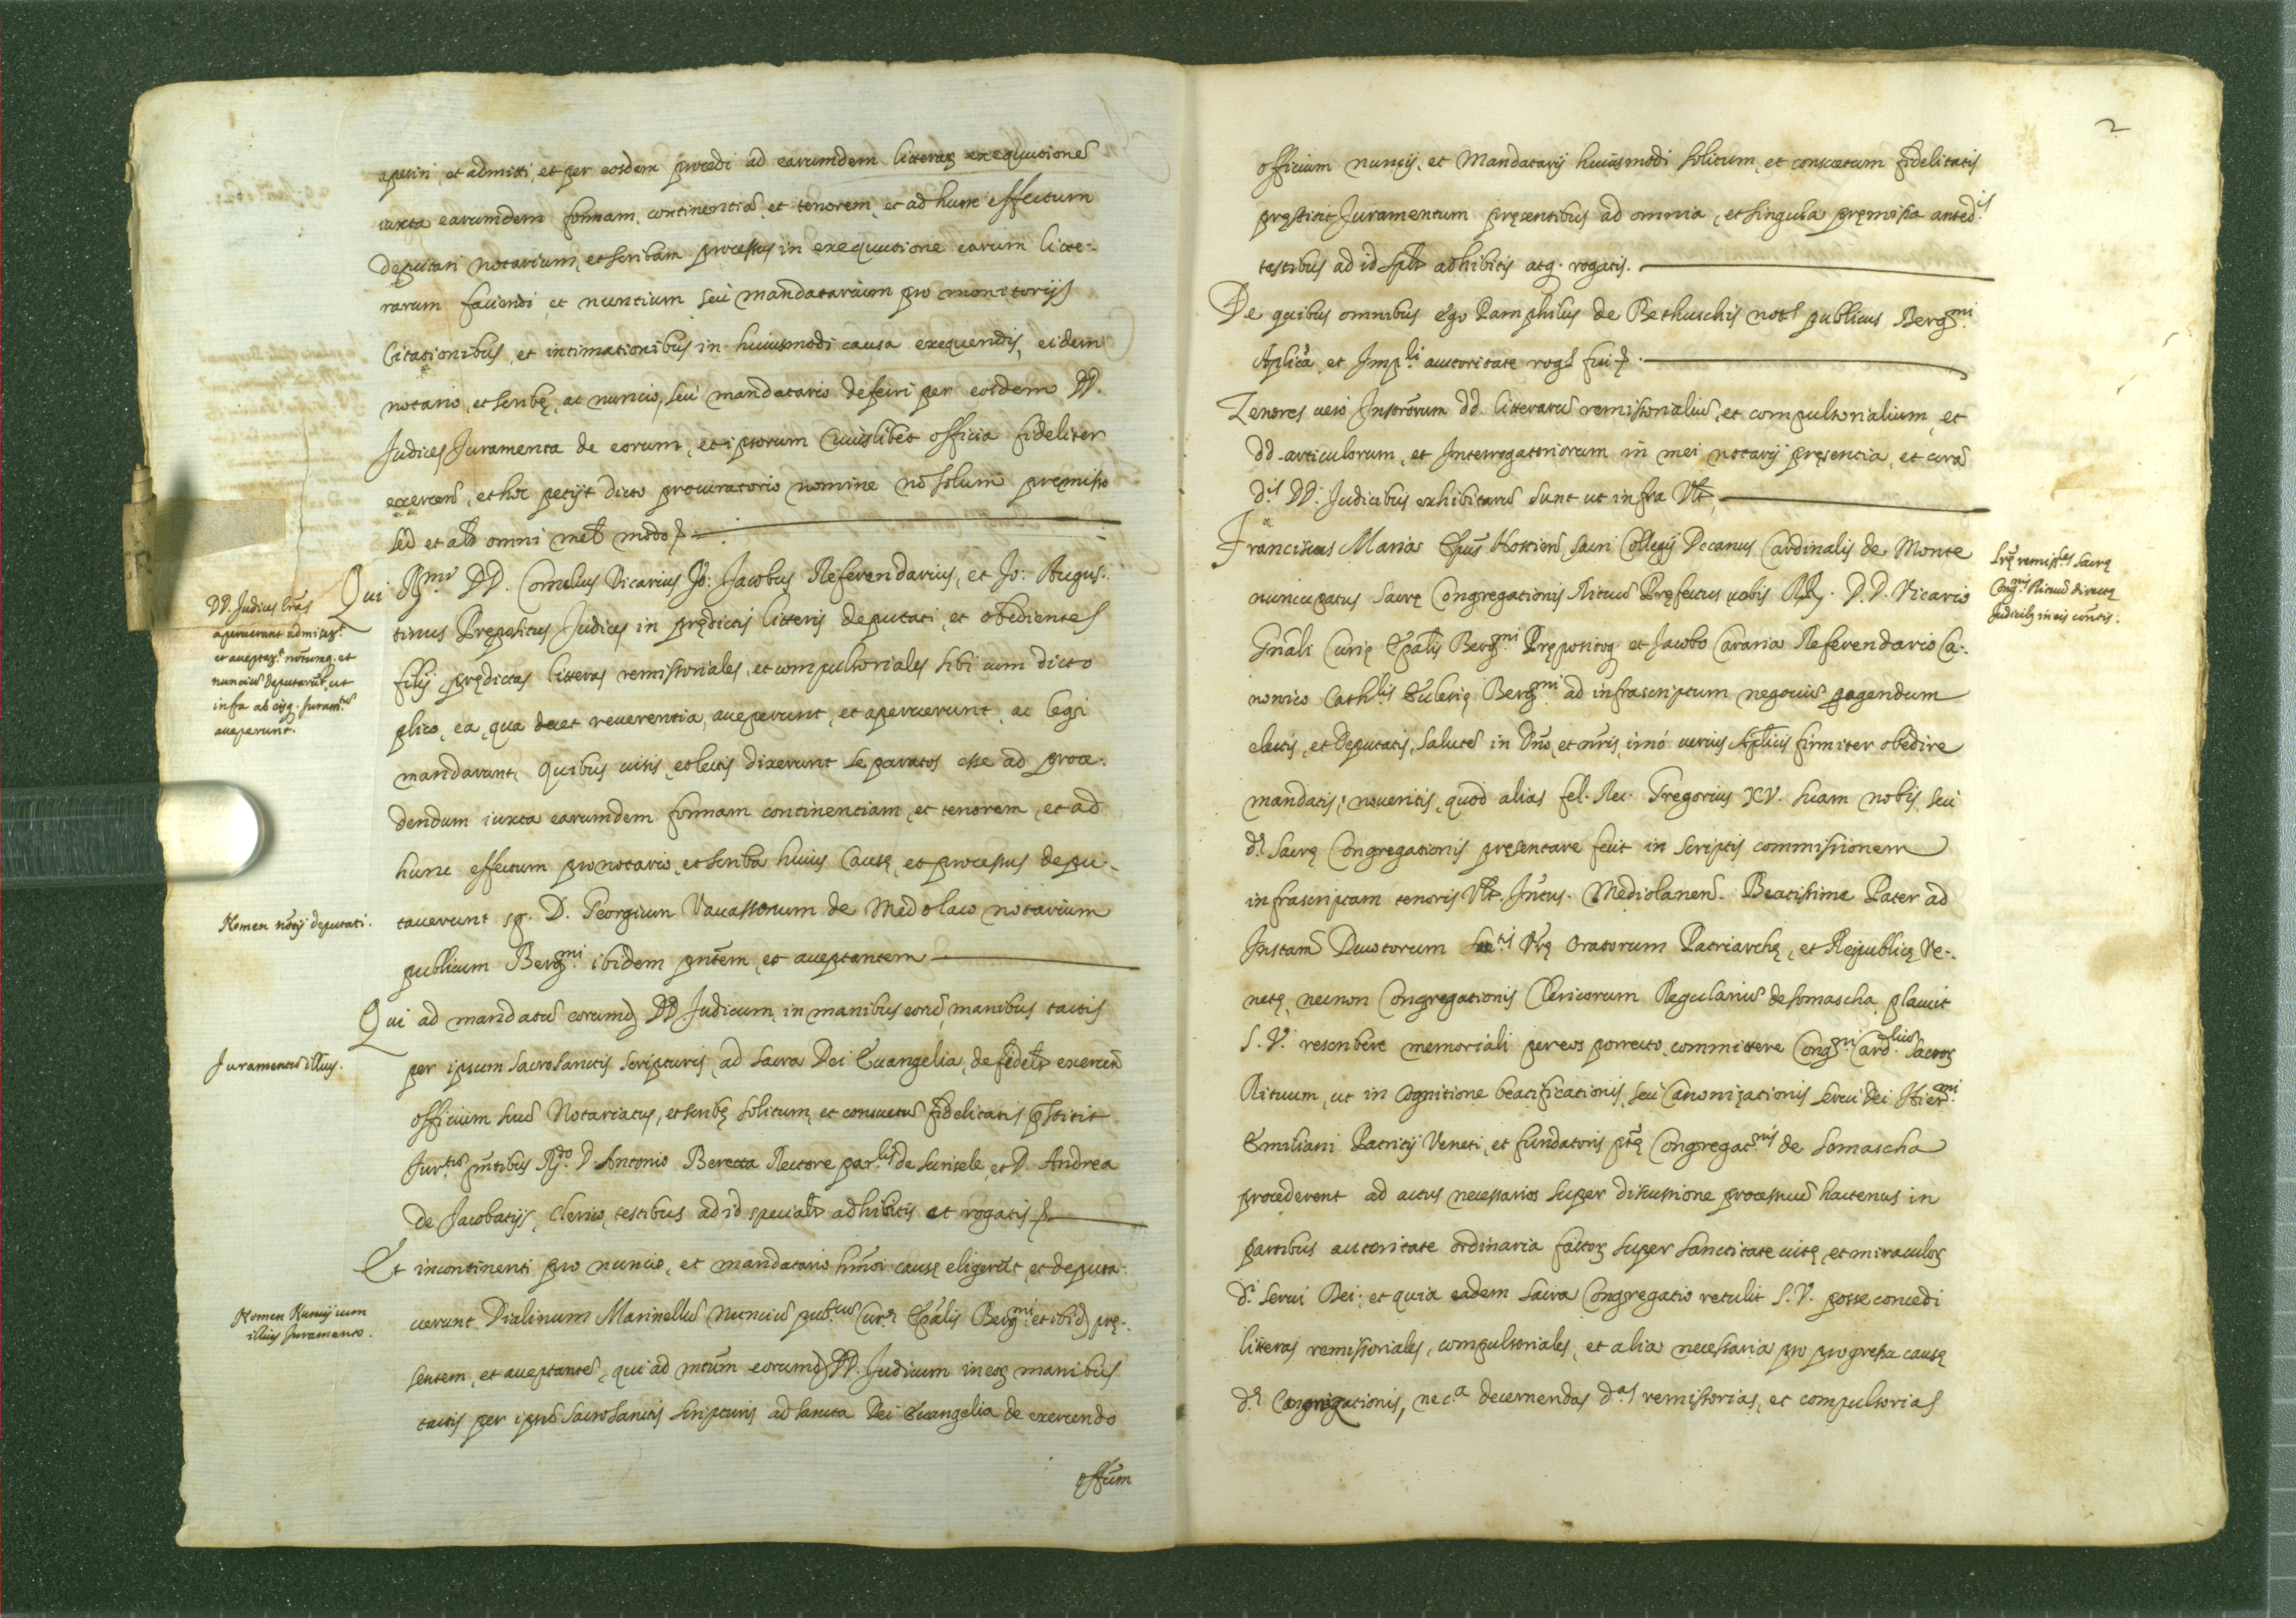 aperiri, et admitti, et per eosdem procedi ad earumdem litterar exequutionē
iuxta earumdem formam, continentiā, et tenorem, et ad hunc effectum
deputari notarium, et scribam processus in exequutione earum litte-
rarum faciendi et nuntium seu mandatarium pro monitorijs
Citationibus, et intimationibus in huiusmodi causa exequendis, eidem
notario, et scribę, ac nuncio, seu mandatario deferri per eosdem DD.
Judices Juramenta de eorum, et ipsorum Cuiuslibet officia fideliter
exercen̄, et hoc petijt dicto procuratorio nomine nō solum premisso
sed et al̄r omni mel̄ modo
DD. Judices lrās
aperuerunt admiser.t
et acceptar.t notumq. et
nunciū deputarūt, ut
infra ab eisq. Juram.tū
acceperunt.
Qui RR.mi DD. Cornelius Vicarius Jo: Jacobus Referendarius, et Jo: Augus-
tinus Prępositus Judices in prędictis litteris deputati, et obedientes
filij prędictas litteras remissoriales, et compulsoriales sibi cum dicto
plico, ea, qua decet reuerentia, acceperunt, et aperuerunt, ac legi
mandarunt, Quibus uisis, et lectis dixerunt se paratos esse ad proce-
dendum iuxta earumdem formam continentiam, et tenorem, et ad
hunc effectum pro notario, et scriba huius Causę, et processus depu-
Nomen notij deputati.
tauerunt sp. D. Georgium Vauassorum de Medolaco notarium
publicum Berg.mi ibidem pn̄tem, et acceptantem
Qui ad mandatū eorumd. DD Judicum, in manibus eorū, manibus tactis
Juramentū illius.
per ipsum sacrosanctis scripturis, ad sacra Dei Euangelia, de fidel̄r exercen̄
officium suū Notariatus, et scribę solitum, et consuetū fidelitatis p̄stitit
Jur.tū pn̄tibus R.do D. Antonio Beretta Rectore par.lis de Surisele, et D. Andrea
de Jacobatijs, Clerico, testibus ad id special̄r adhibitis et rogatis
Et incontinenti pro nuncio, et mandatario hm̄oi causę eligerūt, et deputa-
Nomen Nuncij cum
illius Juramento.
uerunt Dialinum Marinellū Nunciū pub.cū Cur.ę Ep̄alis Berg.mi et ibid. prę-
sentem, et acceptantē, qui ad mtūm eorumd. DD. Judicum in eor manibus
tactis per ipsū sacrosanctis scripturis ad sancta Dei Euangelia de exercendo
offūm
2
officium nuncij, et Mandatarij huiusmodi solitum, et consuetum fidelitatis
pręstitit Juramentum pręsentibus ad omnia, et singula pręmissa anted.is
testibus ad id sp̄lr adhibitis atq. rogatis.
De quibus omnibus ego Pamphilus de Bethuschis not.s publicus Berg.mi
Ap̄lica, et Imp.li auctoritate rog.s fui
Tenores uero Insōrum dd. litterarū remissorialiū, et compulsorialium, et
dd. articulorum, et Interrogatoriorum in mei notarij pręsentia, et corā
d.is DD. Judicibus exhibitarū sunt ut infra Vt
Lrę remiss.les Sacrę
Cong.nis Rituū directę
Judicib. in eis contis.
Franciscus Maria Ep̄us Hostien̄ sacri Collegij Decanus Cardinalis de Monte
nuncupatus sacrę Congregationis Rituū Pręfectus uobis RR. D.D. Vicario
Gn̄ali Curię Ep̄alis Berg.mi Pręposito, et Jacobo Cararia Referendario Ca-
nonico Cath.lis Ecclesię Berg.mi ad infrascriptum negociū pagendum
electis, et Deputatis, salutē in Dn̄o, et nr̄is, imò uerius Ap̄licis firmiter obedire
mandatis; noueritis, quod alias fel. Rec. Gregorius XV. suam nobis, seu
d.ę Sacrę Congregationis pręsentare fecit in scriptis commissionem
infrascriptam tenoris Vt. Intus. Mediolanen̄. Beatissime Pater ad
Instam̄ Deuotorum San.tis Vr̄ę Oratorum Patriarchę, et Reipublicę Ve-
netę, necnon Congregationis Clericorum Regulariū de Somascha placuit
S. V. rescribere memoriali per eos porrecto, committere Cong.ni Card.liū Sacror
Rituum, ut in Cognitione beatificationis, seu Canonizationis Serui Dei Hier.mi
Emiliani Patritij Veneti, et fundatoris ptę Congregat.nis de Somascha
procederent ad actus necessarios super discussione processuū hactenus in
partibus autoritate ordinaria factor super sanctitate uitę, et miraculor
d.i Serui Dei; et quia eadem sacra Congregatio retulit S. V. posse concedi
litteras remissoriales, compulsoriales, et alia necessaria pro progressu causę
d.ę Congregationis, nec.a decernendas d.as remissorias, et compulsorias